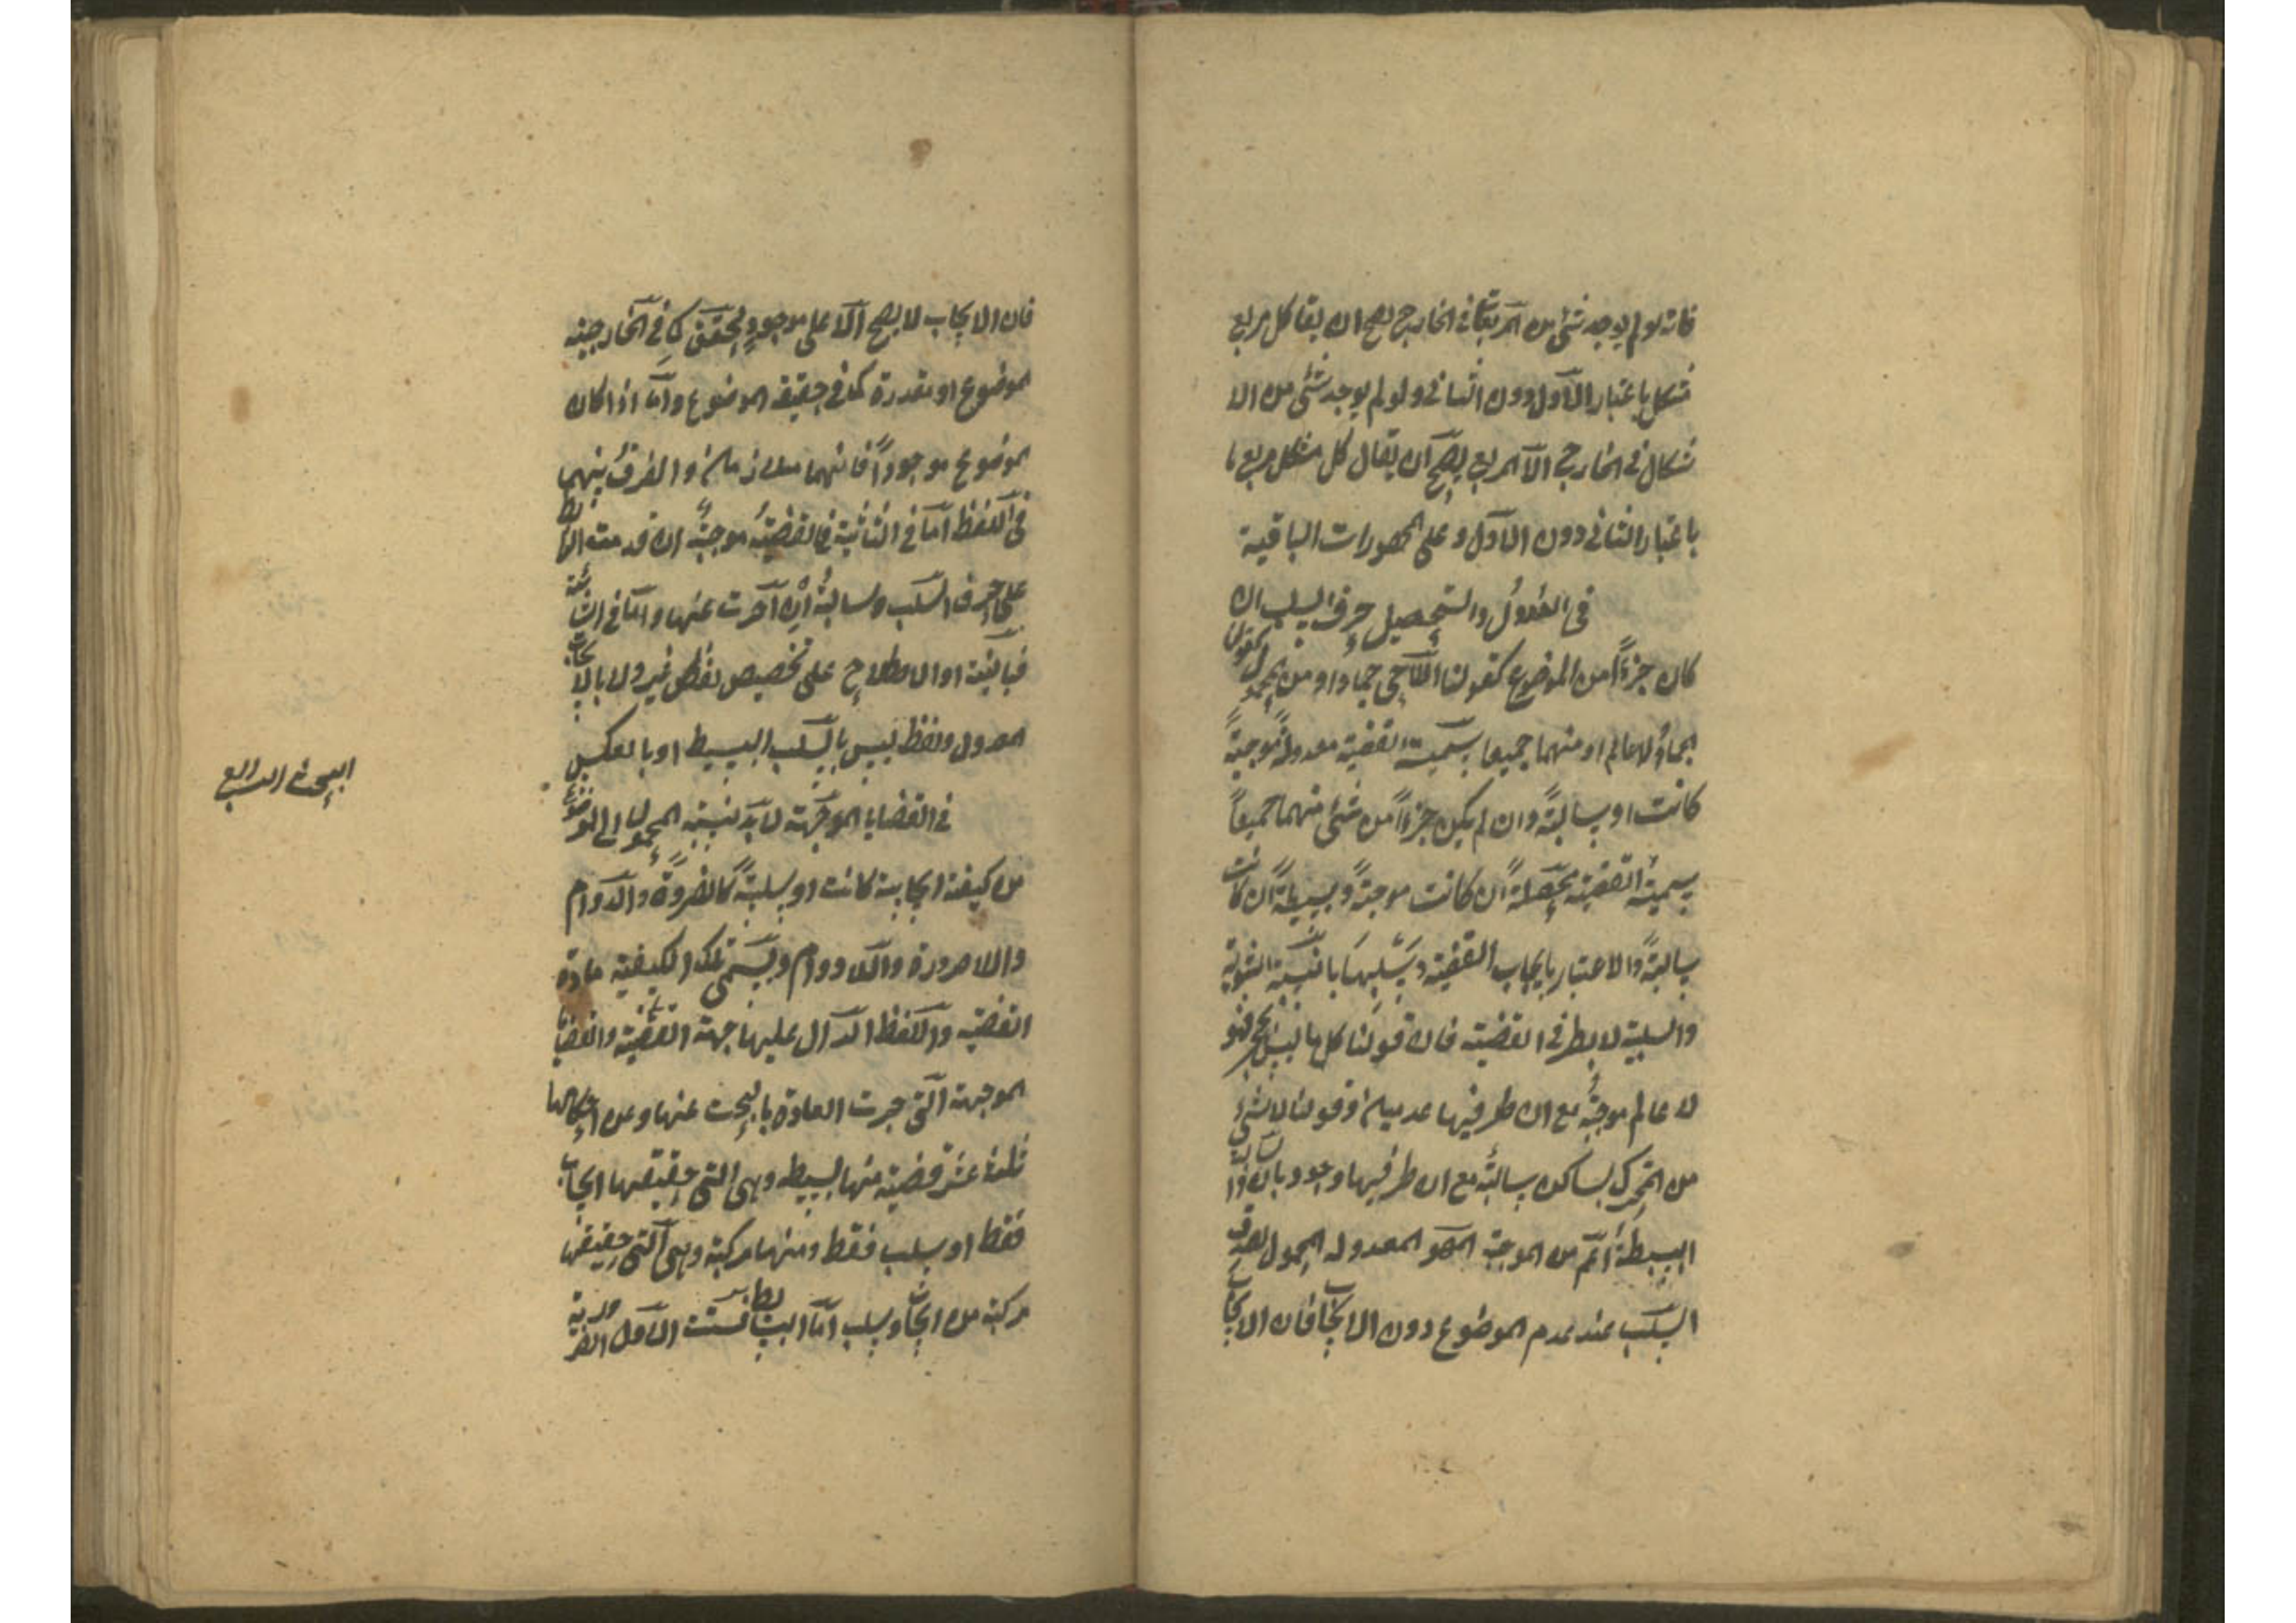 فانه لو لم يوجد شئ من المربعات فى الخارج يصح ان يقا كل مربع
شكل باعتبار الاول دون الثانى ولو لم يوجد شئ من الا
شكال فى الخارج الا المربع يصح ان يقال كل شكل مربع
باعتبار الثانى دون الاول وعلى المحصورات الباقية
فى العدول والتحصيل حرف السلب ان
كان جزءاً من الموضوع كقولنا اللاحى جماد او من المحمول كقولنا
الجماد لا عالم او منهما جميعا سميت القضية معدولة موجبةً
كانت او سالبةً وان لم يكن جزءاً من شئ منهما جميعاً
سميت القضية محصلة ان كانت موجبةً وبسيطة ان كانت
سالبةً والاعتبار بايجاب القضية وسلبها بالنسبة الثبوتية
والسلبية لا بطرفى القضية فان قولنا كل ما ليس بحى فهو
لا عالم موجبة مع ان طرفيها عدميان وقولنا لا شئ
من المتحرك بساكن سالبة مع ان طرفيها وجوديان والسالبة
البسيطة اعم من الموجبة المعدولة المحمول لصدق
السلب عند عدم الموضوع دون الايجاب فان الايجاب
فان الايجاب لا يصح الا على موجود محقق كما فى الخارجية
الموضوع او مقدرة كما فى حقيقة الموضوع واما اذا كان
الموضوع موجوداً فانهما متلازمان والفرق بينهما
فى اللفظ اما فى الثلاثية فالقضية موجبة ان قدمت الرابطة
على حرف السلب وسالبة ان اخرت عنها واما فى الثنائية
فبالنية او الاصطلاح على تخصيص لفظ غير ولا بالايجاب
المعدول ولفظ ليس بالسلب البسيط او بالعكس
البحث الرابع
فى القضايا الموجهة لا بد لنسبة المحمول الى الموضوع
من كيفية ايجابية كانت او سلبية كالضرورة والدوام
واللاضرورة واللادوام وتسمى تلك الكيفية مادة
القضية واللفظ الدال عليها جهة القضية والقضايا
الموجهة التى جرت العادة بالبحث عنها وعن احكامها
ثلثة عشر قضية منها بسيطه وهى التى حقيقتها ايجاب
فقط او سلب فقط ومنها مركبة وهى التى حقيقتها
مركبة من ايجاب وسلب اما البسائط فست الاول الضرورية